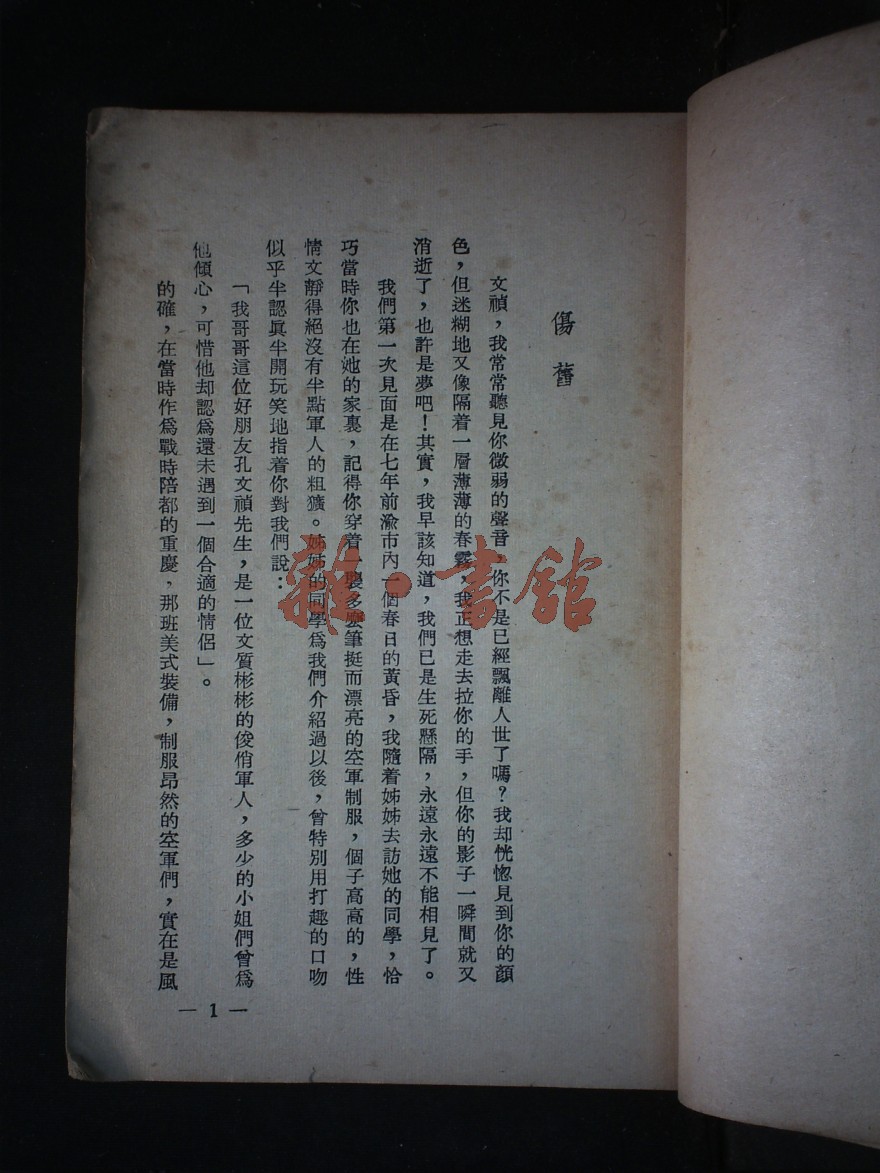 傷舊
文禎，我常常聽見你微弱的聲音，你不是已經飄離人世了嗎？我却恍惚見到你的顏
色，但迷糊地又像隔着一層薄薄的春霧，我正想走去拉你的手，但你的影子一瞬間就又
消逝了，也許是夢吧！其實，我早該知道，我們已是生死懸隔，永遠永遠不能相見了。
我們第一次見面是在七年前渝市內一個春日的黃昏，我隨着姊姊去訪她的同學，恰
巧當時你也在她的家裏，記得你穿着一襲多麼筆挺而漂亮的空軍制服，個子高高的，性
情文靜得絕沒有半點軍人的粗獷。姊姊的同學爲我們介紹過以後，曾特別用打趣的口吻
似乎半認眞半開玩笑地指着你對我們說：
「我哥哥這位好朋友孔文禎先生，是一位文質彬彬的俊悄軍人，多少的小姐們曾爲
他傾心，可惜他却認爲還未遇到一個合適的情侶」。
的確，在當時作爲戰時陪都的重慶，那班美式裝備，制服昂然的空軍們，實在是風
— 1 —
雜·書館